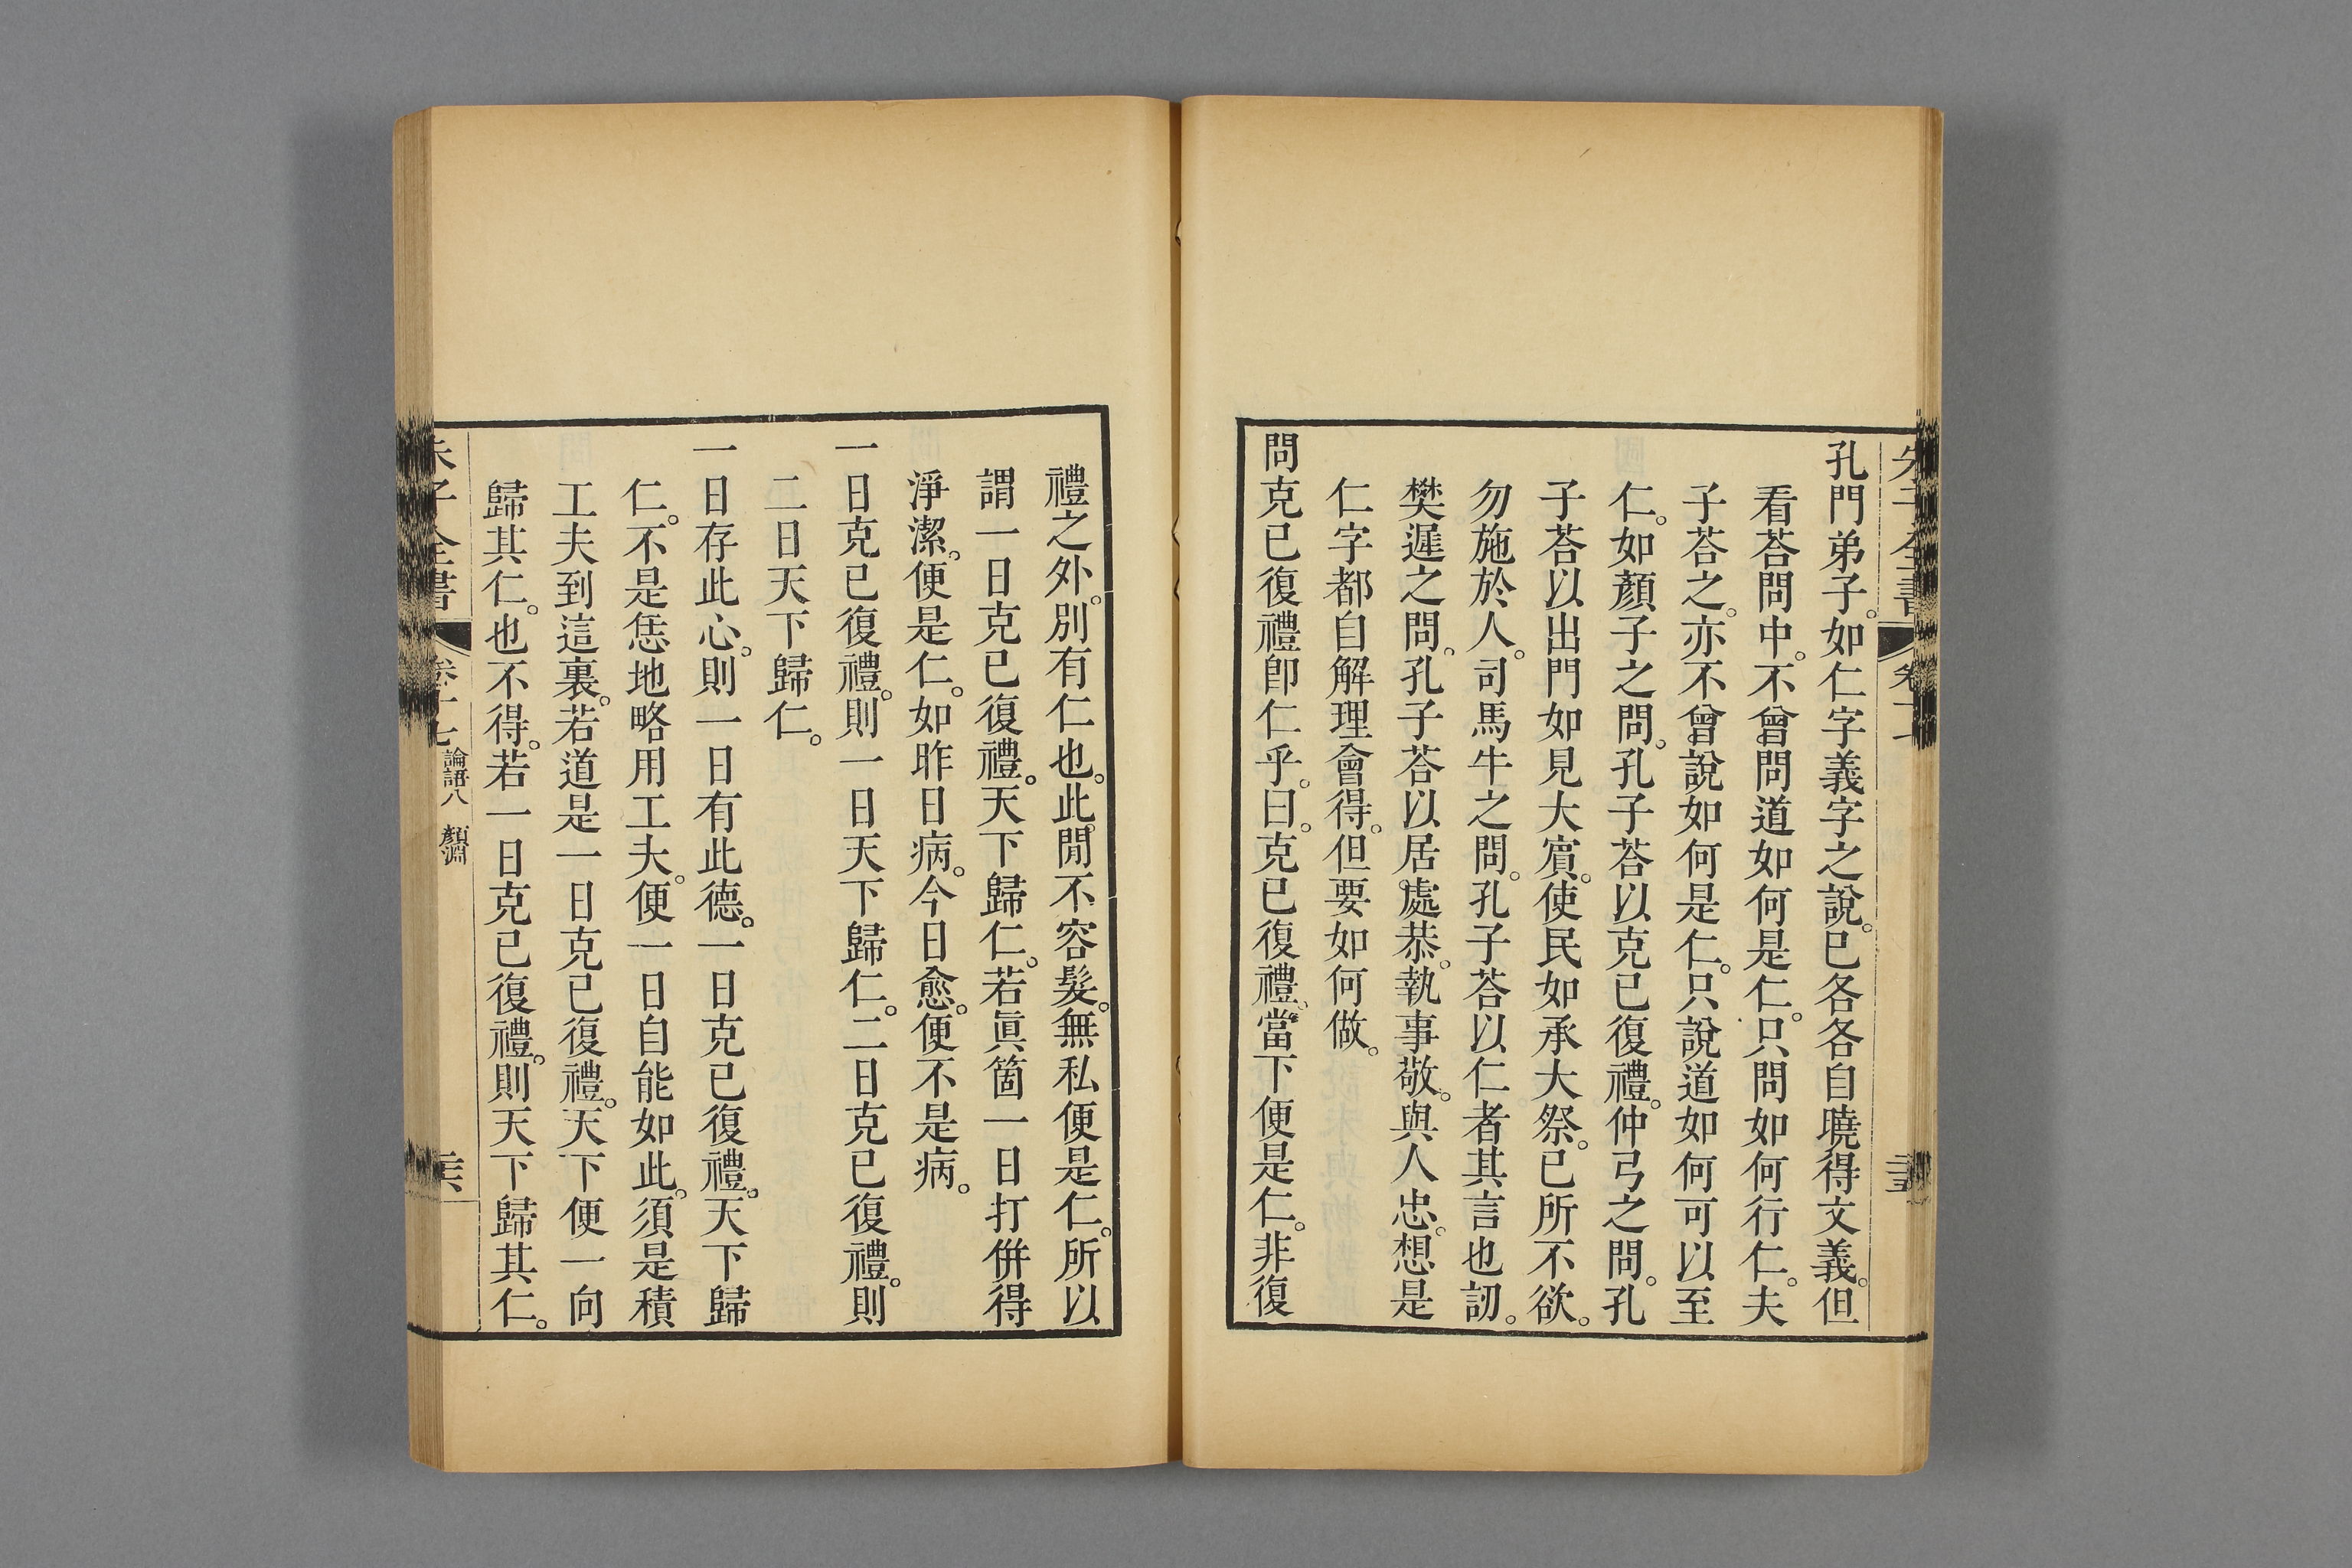 孔門弟子。如仁字義字之說。已各各自曉得文義。但
看荅問中。不曾問道如何是仁。只問如何行仁。夫
子荅之。亦不曾說如何是仁。只說道如何可以至
仁。如顏子之問。孔子荅以克已復禮。仲弓之問。孔
子荅以出門如見大賓。使民如承大祭。已所不欲。
勿施於人。司馬牛之問。孔子荅以仁者其言也訒。
樊遲之問。孔子荅以居處恭。執事敬。與人忠。想是
仁字都自解理會得。但要如何做。
問克已復禮卽仁乎。曰。克已復禮。當下便是仁。非復
禮之外。別有仁也。此閒不容髮。無私便是仁。所以
謂一日克已復禮。天下歸仁。若眞箇一日打倂得
淨潔。便是仁。如昨日病。今日愈。便不是病。
一日克已復禮。則一日天下歸仁。二日克已復禮。則
二日天下歸仁。
一日存此心。則一日有此德。一日克已復禮。天下歸
仁。不是恁地略用工夫。便一日自能如此。須是積
工夫到這裏。若道是一日克已復禮。天下便一向
歸其仁。也不得。若一日克已復禮。則天下歸其仁。
朱子全書 卷十七 論語八 顏淵